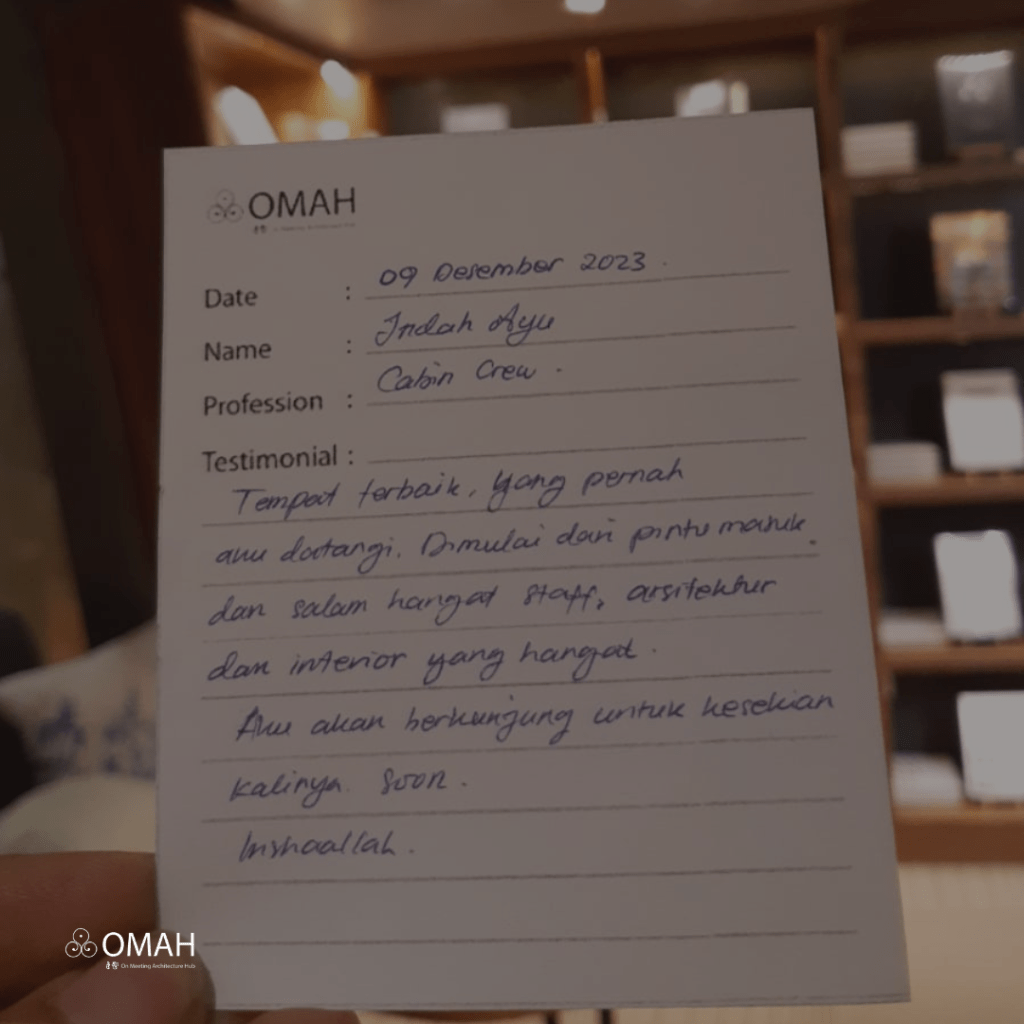 OMAH
Date : 09 Desember 2023.
Name : Indah Ayu
Profession : Cabin Crew.
Testimonial :
Tempat terbaik, yang pernah
aku datangi. Dimulai dari pintu masuk.
dan salam hangat staff, arsitektur
dan interior yang hangat.
Aku akan berkunjung untuk kesekian
kalinya. Soon.
Inshaallah.
OMAH
On Meeting Architecture Hub